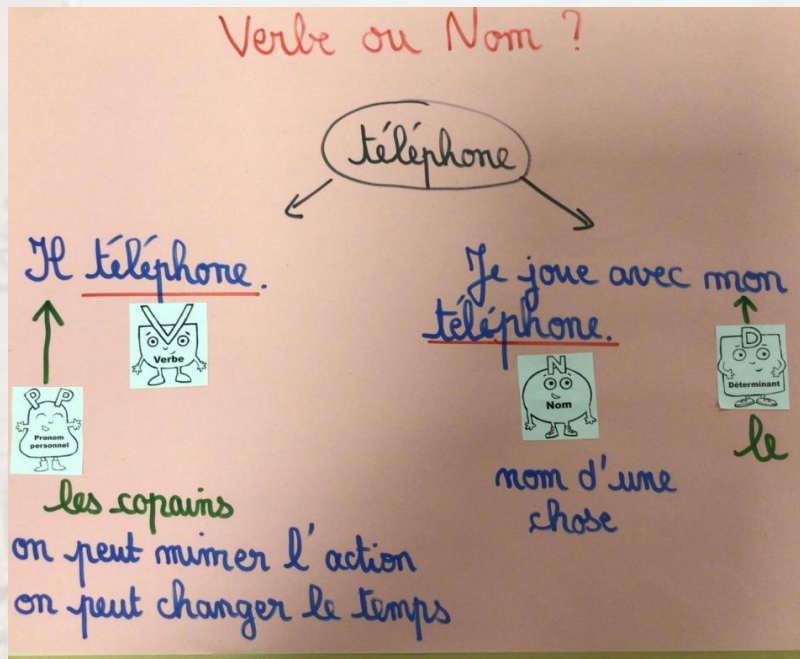 Verbe ou Nom ?
téléphone
Il téléphone.
V
Verbe
P P
Pronom
personnel
les copains
on peut mimer l'action
on peut changer le temps
Je joue avec mon
téléphone.
N
Nom
D
Déterminant
le
nom d'une
chose